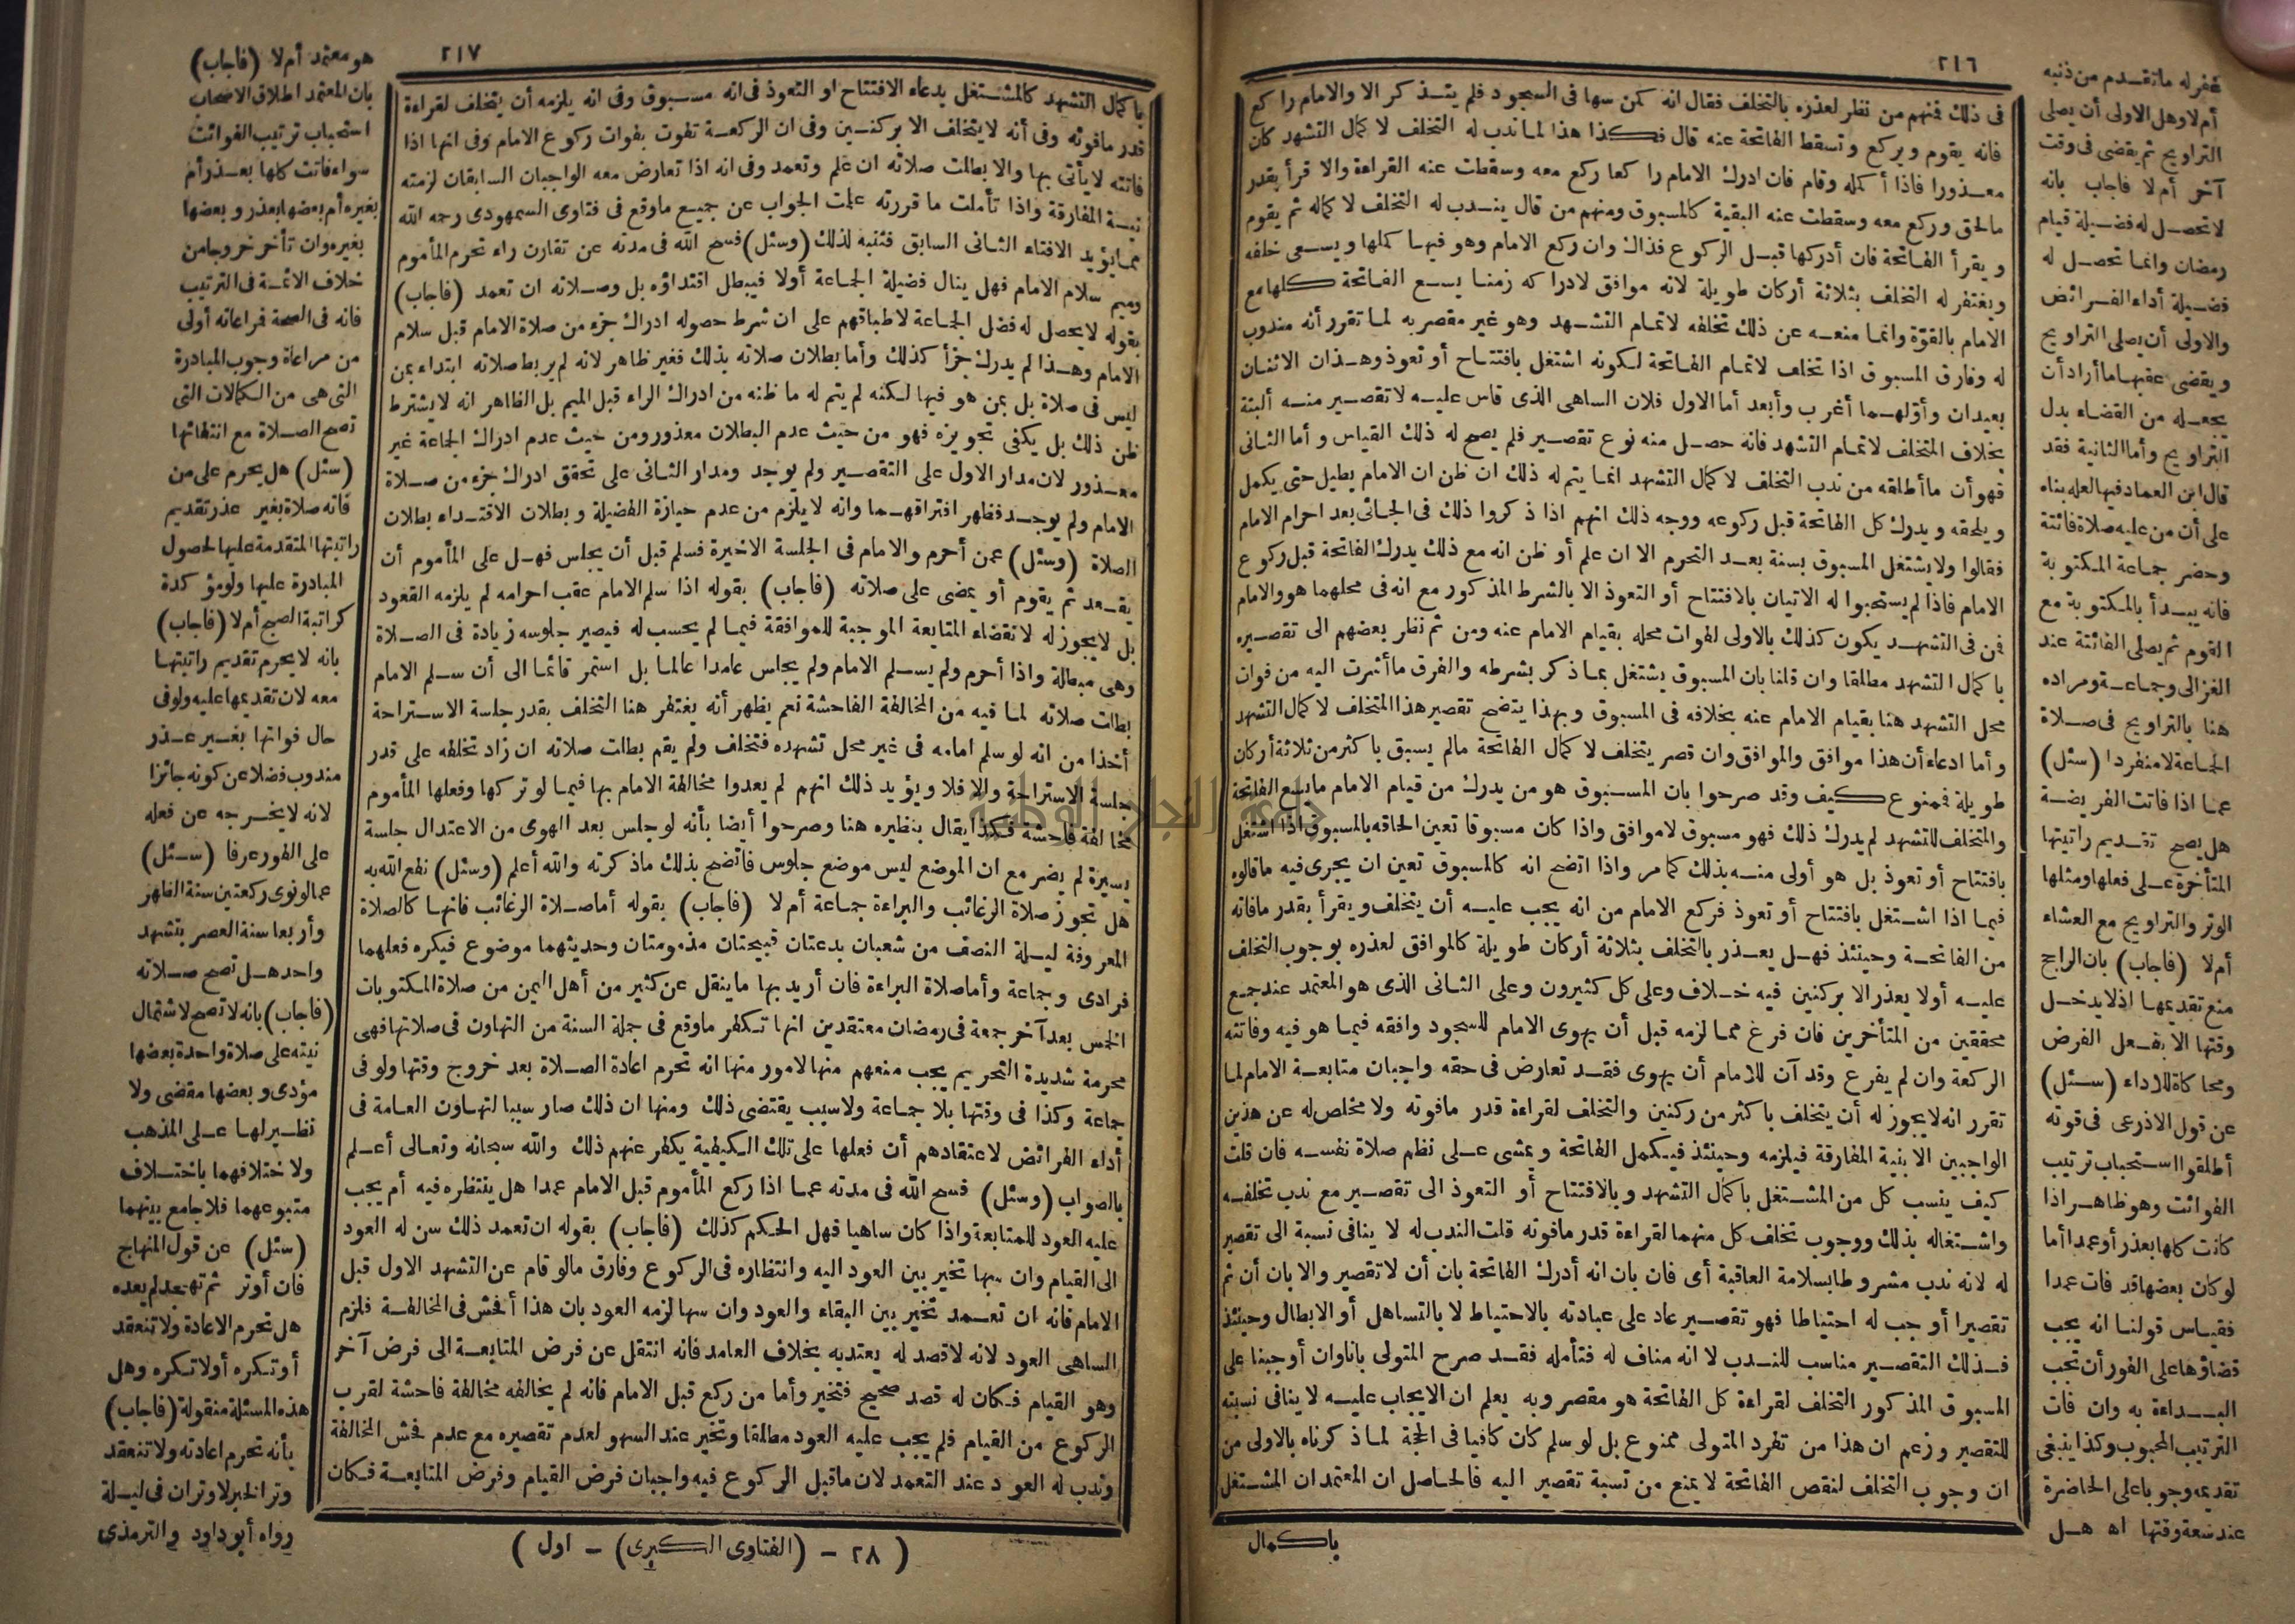 ٢١٦
فى ذلك فمنهم من نظر لعذره بالتخلف فقال انه كمن سها فى السجود فلم يتذكر الا والامام راكع
فانه يقوم ويركع وتسقط الفاتحة عنه قال فكذا هذا لما ندب له التخلف لاكمال التشهد كان
معذورا فاذا أكمله وقام فان ادرك الامام راكعا ركع معه وسقطت عنه القراءة والا قرأ بقدر
مالحق وركع معه وسقطت عنه البقية كالمسبوق ومنهم من قال يندب له التخلف لاكماله ثم يقوم
ويقرأ الفاتحة فان أدركها قبل الركوع فذاك وان ركع الامام وهو فيها كملها ويسعى خلفه
ويغتفر له التخلف بثلاثة أركان طويلة لانه موافق لادراكه زمنا يسع الفاتحة كلها مع
الامام بالقوة وانما منعه عن ذلك تخلفه لاتمام التشهد وهو غير مقصر به لما تقرر أنه مندوب
له وفارق المسبوق اذا تخلف لاتمام الفاتحة لكونه اشتغل بافتتاح أو تعوذ وهذان الاثنان
بعيدان وأولهما أغرب وأبعد أما الاول فلان الساهى الذى قاس عليه لا تقصير منه ألبتة
بخلاف المتخلف لاتمام التشهد فانه حصل منه نوع تقصير فلم يصح له ذلك القياس وأما الثانى
فهو أن ما أطلقه من ندب التخلف لاكمال التشهد انما يتم له ذلك ان ظن ان الامام يطيل حتى يكمل
ويلحقه ويدرك كل الفاتحة قبل ركوعه ووجه ذلك انهم اذا ذكروا ذلك فى الجائى بعد احرام الامام
فقالوا ولا يشتغل المسبوق بسنة بعد التحرم الا ان علم أو ظن انه مع ذلك يدرك الفاتحة قبل ركوع
الامام فاذا لم يستحبوا له الاتيان بالافتتاح أو التعوذ الا بالشرط المذكور مع انه فى محلهما هو والامام
فمن فى التشهد يكون كذلك بالاولى لفوات محله بقيام الامام عنه ومن ثم نظر بعضهم الى تقصيره
باكمال التشهد مطلقا وان قلنا بان المسبوق يشتغل بما ذكر بشرطه والفرق ما أشرت اليه من فوات
محل التشهد هنا بقيام الامام عنه بخلافه فى المسبوق وبهذا يتضح تقصير هذا المتخلف لاكمال التشهد
وأما ادعاء أن هذا موافق والموافق وان قصر يتخلف لاكمال الفاتحة مالم يسبق باكثر من ثلاثة أركان
طويلة فممنوع كيف وقد صرحوا بان المسبوق هو من يدرك من قيام الامام ما يسع الفاتحة
والمتخلف للتشهد لم يدرك ذلك فهو مسبوق لا موافق واذا كان مسبوقا تعين الحاقه بالمسبوق اذا اشتغل
بافتتاح أو تعوذ بل هو أولى منه بذلك كما مر واذا اتضح انه كالمسبوق تعين ان يجرى فيه ما قالوه
فيما اذا اشتغل بافتتاح أو تعوذ فركع الامام من انه يجب عليه أن يتخلف ويقرأ بقدر ما فاته
من الفاتحة وحينئذ فهل يعذر بالتخلف بثلاثة أركان طويلة كالموافق لعذره بوجوب التخلف
عليه أولا يعذر الا بركنين فيه خلاف وعلى كل كثيرون وعلى الثانى الذى هو المعتمد عند جمع
محققين من المتأخرين فان فرغ مما لزمه قبل أن يهوى الامام للسجود وافقه فيما هو فيه وفاتته
الركعة وان لم يفرع وقد آن للامام أن يهوى فقد تعارض فى حقه واجبان متابعة الامام لما
تقرر انه لا يجوز له أن يتخلف باكثر من ركنين والتخلف لقراءة قدر مافوته ولا مخلص له عن هذين
الواجبين الا بنية المفارقة فيلزمه وحينئذ فيكمل الفاتحة ويمشى على نظم صلاة نفسه فان قلت
كيف ينسب كل من المشتغل باكمال التشهد وبالافتتاح أو التعوذ الى تقصير مع ندب تخلفه
واشتغاله بذلك ووجوب تخلف كل منهما لقراءة قدر مافوته قلت الندب له لا ينافى نسبة الى تقصير
له لانه ندب مشروط بسلامة العاقبة أى فان بان انه أدرك الفاتحة بان أن لا تقصير والا بان أن ثم
تقصيرا أوجب له احتياطا فهو تقصير عاد على عبادته بالاحتياط لا بالتساهل أو الابطال وحينئذ
فذلك التقصير مناسب للندب لا انه مناف له فتأمله فقد صرح المتولى بانا وان أوجبنا على
المسبوق المذكور التخلف لقراءة كل الفاتحة هو مقصر وبه يعلم ان الايجاب عليه لا ينافى نسبته
للتقصير وزعم ان هذا من تفرد المتولى ممنوع بل لو سلم كان كافيا فى الحجة لما ذكرناه بالاولى من
ان وجوب التخلف لنقص الفاتحة لا يمنع من نسبة تقصير اليه فالحاصل ان المعتمد ان المشتغل
باكمال
غفر له ما تقدم من ذنبه
أم لا وهل الاولى أن يصلى
التراويح ثم يقضى فى وقت
آخر أم لا فاجاب بانه
لا تحصل له فضيلة قيام
رمضان وانما تحصل له
فضيلة أداء الفرائض
والاولى أن يصلى التراويح
ويقضى عقبها ما أراد أن
يجعله من القضاء بدل
التراويح وأما الثانية فقد
قال ابن العماد فيها لعله بناه
على أن من عليه صلاة فائتة
وحضر جماعة المكتوبة
فانه يبدأ بالمكتوبة مع
القوم ثم يصلى الفائتة عند
الغزالى وجماعة ومراده
هنا بالتراويح فى صلاة
الجماعة لا منفردا (سئل)
عما اذا فاتت الفريضة
هل يصح تقديم راتبتها
المتأخرة على فعلها ومثلها
الوتر والتراويح مع العشاء
أم لا (فاجاب) بان الراجح
منع تقديمها اذ لا يدخل
وقتها الا بفعل الفرض
ومحاكاة للاداء (سئل)
عن قول الاذرعى فى قوته
أطلقوا استحباب ترتيب
الفوائت وهو ظاهر اذا
كانت كلها بعذر أو عمدا أما
لو كان بعضها قد فات عمدا
فقياس قولنا انه يجب
قضاؤها على الفور أن تجب
البداءة به وان فات
الترتيب المحبوب وكذا ينبغى
تقديمه وجوبا على الحاضرة
عند سعة وقتها اه هل
٢١٧
باكمال التشهد كالمشتغل بدعاء الافتتاح او التعوذ فى انه مسبوق وفى انه يلزمه أن يتخلف لقراءة
قدر مافوته وفى أنه لا يتخلف الا بركنين وفى ان الركعة تفوت بفوات ركوع الامام وفى انها اذا
فاتته لا يأتى بها والا بطلت صلاته ان علم وتعمد وفى انه اذا تعارض معه الواجبان السابقان لزمته
نية المفارقة واذا تأملت ما قررته علمت الجواب عن جميع ما وقع فى فتاوى السمهودى رحمه الله
مما يؤيد الافتاء الثانى السابق فتنبه لذلك (وسئل) فسح الله فى مدته عن تقارن راء تحرم المأموم
وميم سلام الامام فهل ينال فضيلة الجماعة أولا فيبطل اقتداؤه بل وصلاته ان تعمد (فاجاب)
بقوله لا يحصل له فضل الجماعة لاطباقهم على ان شرط حصوله ادراك جزء من صلاة الامام قبل سلام
الامام وهذا لم يدرك جزأ كذلك وأما بطلان صلاته بذلك فغير ظاهر لانه لم يربط صلاته ابتداء بمن
ليس فى صلاة بل بمن هو فيها لكنه لم يتم له ما ظنه من ادراك الراء قبل الميم بل الظاهر انه لا يشترط
ظن ذلك بل يكفى تجويزه فهو من حيث عدم البطلان معذور ومن حيث عدم ادراك الجماعة غير
معذور لان مدار الاول على التقصير ولم يوجد ومدار الثانى على تحقق ادراك جزء من صلاة
الامام ولم يوجد فظهر افتراقهما وانه لا يلزم من عدم حيازة الفضيلة وبطلان الاقتداء بطلان
الصلاة (وسئل) عمن أحرم والامام فى الجلسة الاخيرة فسلم قبل أن يجلس فهل على المأموم أن
يقعد ثم يقوم أو يمضى على صلاته (فاجاب) بقوله اذا سلم الامام عقب احرامه لم يلزمه القعود
بل لا يجوز له لانقضاء المتابعة الموجبة للموافقة فيما لم يحسب له فيصير جلوسه زيادة فى الصلاة
وهى مبطلة واذا أحرم ولم يسلم الامام ولم يجلس عامدا عالما بل استمر قائما الى أن سلم الامام
بطلت صلاته لما فيه من المخالفة الفاحشة نعم يظهر أنه يغتفر هنا التخلف بقدر جلسة الاستراحة
أخذا من انه لو سلم امامه فى غير محل تشهده فتخلف ولم يقم بطلت صلاته ان زاد تخلفه على قدر
جلسة الاستراحة والا فلا ويؤيد ذلك انهم لم يعدوا مخالفة الامام بها فيما لو تركها وفعلها المأموم
مخالفة فاحشة فكذا يقال بنظيره هنا وصرحوا أيضا بأنه لو جلس بعد الهوى من الاعتدال جلسة
يسيرة لم يضر مع ان الموضع ليس موضع جلوس فاتضح بذلك ماذكرته والله أعلم (وسئل) نفع الله به
هل تجوز صلاة الرغائب والبراءة جماعة أم لا (فاجاب) بقوله أما صلاة الرغائب فانها كالصلاة
المعروفة ليلة النصف من شعبان بدعتان قبيحتان مذمومتان وحديثهما موضوع فيكره فعلهما
فرادى وجماعة وأما صلاة البراءة فان أريد بها ما ينقل عن كثير من أهل اليمن من صلاة المكتوبات
الخمس بعد آخر جمعة فى رمضان معتقدين انها تكفر ما وقع فى جملة السنة من التهاون فى صلاتها فهى
محرمة شديدة التحريم يجب منعهم منها لامور منها انه تحرم اعادة الصلاة بعد خروج وقتها ولو فى
جماعة وكذا فى وقتها بلا جماعة ولا سبب يقتضى ذلك ومنها ان ذلك صار سببا لتهاون العامة فى
أداء الفرائض لاعتقادهم أن فعلها على تلك الكيفية يكفر عنهم ذلك والله سبحانه وتعالى أعلم
بالصواب (وسئل) فسح الله فى مدته عما اذا ركع المأموم قبل الامام عمدا هل ينتظره فيه أم يجب
عليه العود للمتابعة واذا كان ساهيا فهل الحكم كذلك (فاجاب) بقوله ان تعمد ذلك سن له العود
الى القيام وان سها تخير بين العود اليه وانتظاره فى الركوع وفارق مالو قام عن التشهد الاول قبل
الامام فانه ان تعمد تخير بين البقاء والعود وان سها لزمه العود بان هذا أفحش فى المخالفة فلزم
الساهى العود لانه لا قصد له يعتد به بخلاف العامد فانه انتقل عن فرض المتابعة الى فرض آخر
وهو القيام فكان له قصد صحيح فتخير وأما من ركع قبل الامام فانه لم يخالفه مخالفة فاحشة لقرب
الركوع من القيام فلم يجب عليه العود مطلقا وتخير عند السهو لعدم تقصيره مع عدم فحش المخالفة
وندب له العود عند التعمد لان ماقبل الركوع فيه واجبان فرض القيام وفرض المتابعة فكان
(٢٨ - (الفتاوى الكبرى) - اول)
هو معتمد أم لا (فاجاب)
بان المعتمد اطلاق الاصحاب
استحباب ترتيب الفوائت
سواء فاتت كلها بعذر أم
بغيره أم بعضها بعذر وبعضها
بغيره وان تأخر خروجا من
خلاف الائمة فى الترتيب
فانه فى الصحة فمراعاته أولى
من مراعاة وجوب المبادرة
التى هى من الكمالات التى
تصح الصلاة مع انتفائها
(سئل) هل يحرم على من
فاته صلاة بغير عذر تقديم
راتبتها المتقدمة عليها لحصول
المبادرة عليها ولو مؤكدة
كراتبة الصبح أم لا (فاجاب)
بانه لا يحرم تقديم راتبتها
معه لان تقديمها عليه ولو فى
حال فواتها بغير عذر
مندوب فضلا عن كونه جائزا
لانه لا يخرجه عن فعله
على الفور عرفا (سئل)
عما لو نوى ركعتين سنة الظهر
وأربعا سنة العصر بتشهد
واحد هل تصح صلاته
(فاجاب) بانه لا تصح لاشتمال
نيته على صلاة واحدة بعضها
مؤدى وبعضها مقضى ولا
نظير لها على المذهب
ولاختلافهما باختلاف
متبوعهما فلا جامع بينهما
(سئل) عن قول المنهاج
فان أوتر ثم تهجد لم يعده
هل تحرم الاعادة ولا تنعقد
أو تكره أولا تكره وهل
هذه المسئلة منقولة (فاجاب)
بأنه تحرم اعادته ولا تنعقد
وترا لخبر لا وتران فى ليلة
رواه أبو داود والترمذى
جامعة النجاح الوطنية